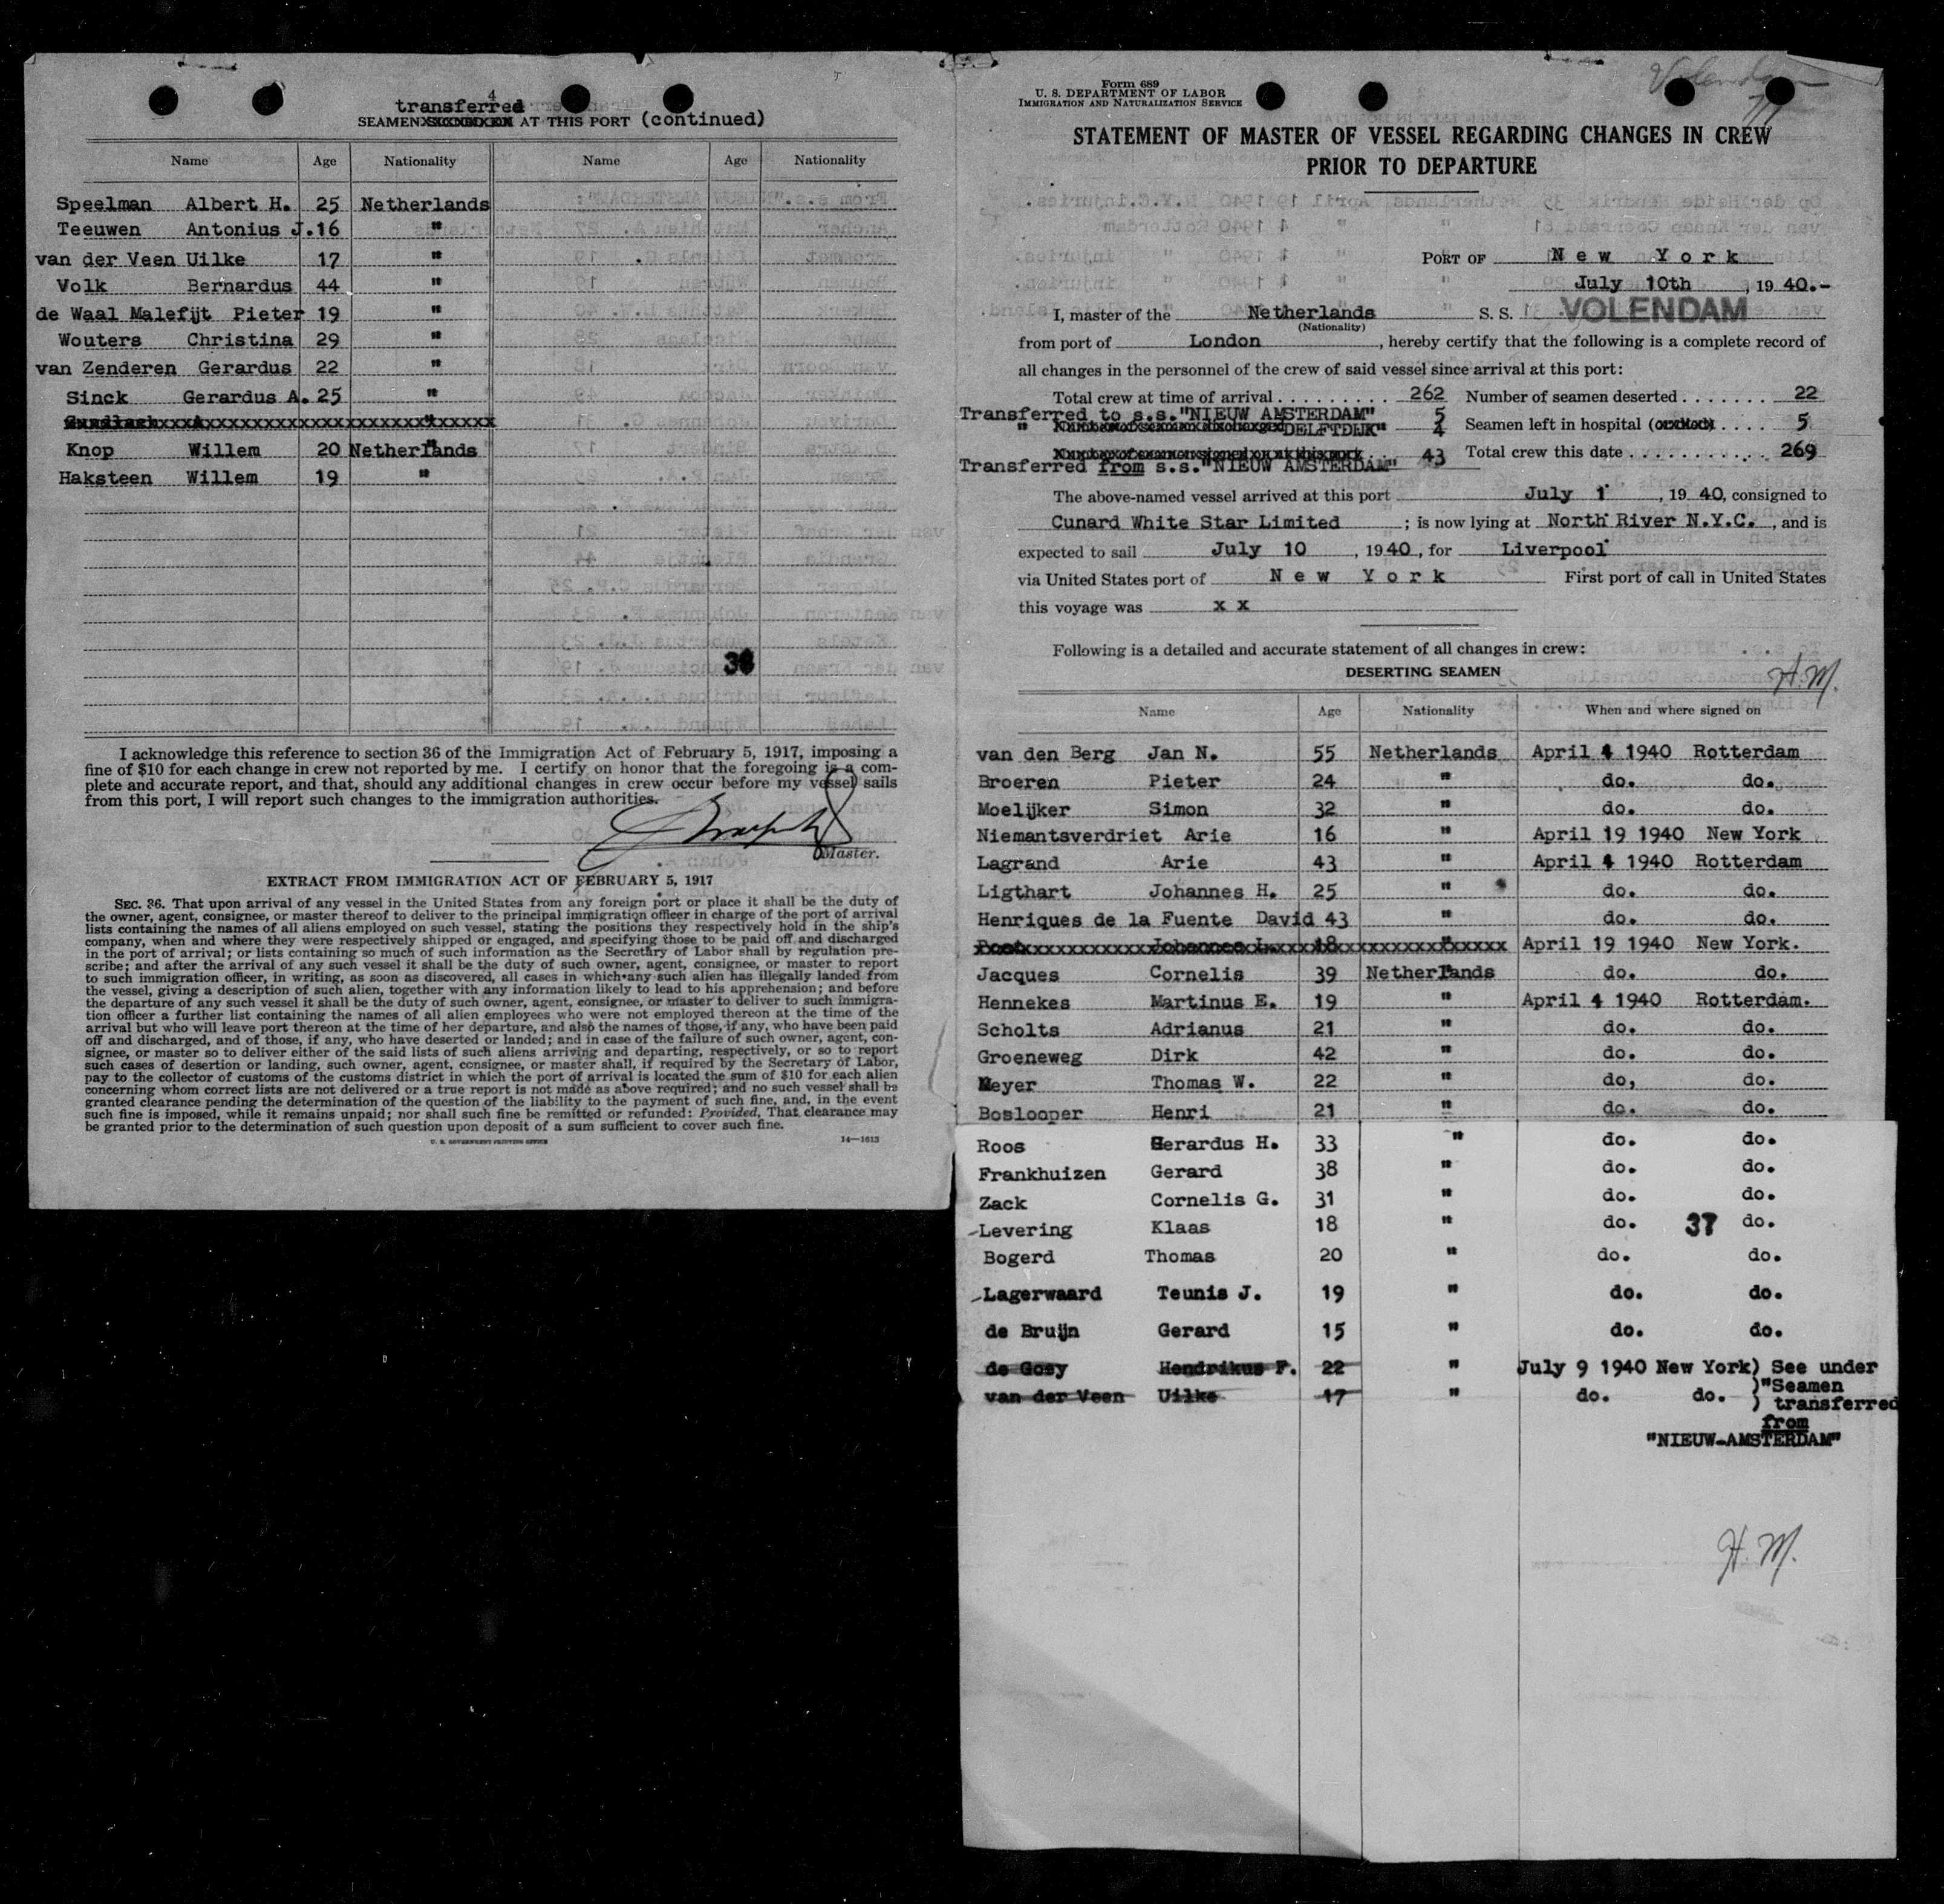 4
transferred
SEAMEN AT THIS PORT (continued)
Name Age Nationality Name Age Nationality
Speelman Albert H. 25 Netherlands
Teeuwen Antonius J. 16 "
van der Veen Uilke 17 "
Volk Bernardus 44 "
de Waal Malefijt Pieter 19 "
Wouters Christina 29 "
van Zenderen Gerardus 22 "
Sinck Gerardus A. 25 "
Knop Willem 20 Netherlands
Haksteen Willem 19 "
36
I acknowledge this reference to section 36 of the Immigration Act of February 5, 1917, imposing a
fine of $10 for each change in crew not reported by me. I certify on honor that the foregoing is a com-
plete and accurate report, and that, should any additional changes in crew occur before my vessel sails
from this port, I will report such changes to the immigration authorities.
Master.
EXTRACT FROM IMMIGRATION ACT OF FEBRUARY 5, 1917
SEC. 36. That upon arrival of any vessel in the United States from any foreign port or place it shall be the duty of
the owner, agent, consignee, or master thereof to deliver to the principal immigration officer in charge of the port of arrival
lists containing the names of all aliens employed on such vessel, stating the positions they respectively hold in the ship's
company, when and where they were respectively shipped or engaged, and specifying those to be paid off and discharged
in the port of arrival; or lists containing so much of such information as the Secretary of Labor shall by regulation pre-
scribe; and after the arrival of any such vessel it shall be the duty of such owner, agent, consignee, or master to report
to such immigration officer, in writing, as soon as discovered, all cases in which any such alien has illegally landed from
the vessel, giving a description of such alien, together with any information likely to lead to his apprehension; and before
the departure of any such vessel it shall be the duty of such owner, agent, consignee, or master to deliver to such immigra-
tion officer a further list containing the names of all alien employees who were not employed thereon at the time of the
arrival but who will leave port thereon at the time of her departure, and also the names of those, if any, who have been paid
off and discharged, and of those, if any, who have deserted or landed; and in case of the failure of such owner, agent, con-
signee, or master so to deliver either of the said lists of such aliens arriving and departing, respectively, or so to report
such cases of desertion or landing, such owner, agent, consignee, or master shall, if required by the Secretary of Labor,
pay to the collector of customs of the customs district in which the port of arrival is located the sum of $10 for each alien
concerning whom correct lists are not delivered or a true report is not made as above required; and no such vessel shall be
granted clearance pending the determination of the question of the liability to the payment of such fine, and, in the event
such fine is imposed, while it remains unpaid; nor shall such fine be remitted or refunded: Provided, That clearance may
be granted prior to the determination of such question upon deposit of a sum sufficient to cover such fine.
U. S. GOVERNMENT PRINTING OFFICE 14—1613
Volendam
Form 689
U. S. DEPARTMENT OF LABOR
IMMIGRATION AND NATURALIZATION SERVICE
STATEMENT OF MASTER OF VESSEL REGARDING CHANGES IN CREW
PRIOR TO DEPARTURE
PORT OF New York
July 10th, 1940.-
I, master of the Netherlands S. S. VOLENDAM
(Nationality)
from port of London, hereby certify that the following is a complete record of
all changes in the personnel of the crew of said vessel since arrival at this port:
Total crew at time of arrival 262 Number of seamen deserted 22
Transferred to s.s."NIEUW AMSTERDAM" 5
" DELFTDIJK" 4 Seamen left in hospital 5
Total crew this date 269
Transferred from s.s."NIEUW AMSTERDAM" 43
The above-named vessel arrived at this port July 1, 1940, consigned to
Cunard White Star Limited; is now lying at North River N.Y.C., and is
expected to sail July 10, 1940, for Liverpool
via United States port of New York First port of call in United States
this voyage was x x
Following is a detailed and accurate statement of all changes in crew:
DESERTING SEAMEN
H.M.
Name Age Nationality When and where signed on
van den Berg Jan N. 55 Netherlands April 4 1940 Rotterdam
Broeren Pieter 24 " do. do.
Moelijker Simon 32 " do. do.
Niemantsverdriet Arie 16 " April 19 1940 New York
Lagrand Arie 43 " April 4 1940 Rotterdam
Ligthart Johannes H. 25 " do. do.
Henriques de la Fuente David 43 " do. do.
Post Johannes L. 18 " April 19 1940 New York.
Jacques Cornelis 39 Netherlands do. do.
Hennekes Martinus E. 19 " April 4 1940 Rotterdam.
Scholts Adrianus 21 " do. do.
Groeneweg Dirk 42 " do. do.
Meyer Thomas W. 22 " do, do.
Boslooper Henri 21 " do. do.
Roos Gerardus H. 33 " do. do.
Frankhuizen Gerard 38 " do. do.
Zack Cornelis G. 31 " do. do.
Levering Klaas 18 " do. 37 do.
Bogerd Thomas 20 " do. do.
Lagerwaard Teunis J. 19 " do. do.
de Bruijn Gerard 15 " do. do.
de Gosy Hendrikus F. 22 " July 9 1940 New York) See under
van der Veen Uilke 17 " do. do. )"Seamen
) transferred
from
"NIEUW-AMSTERDAM"
H.M.